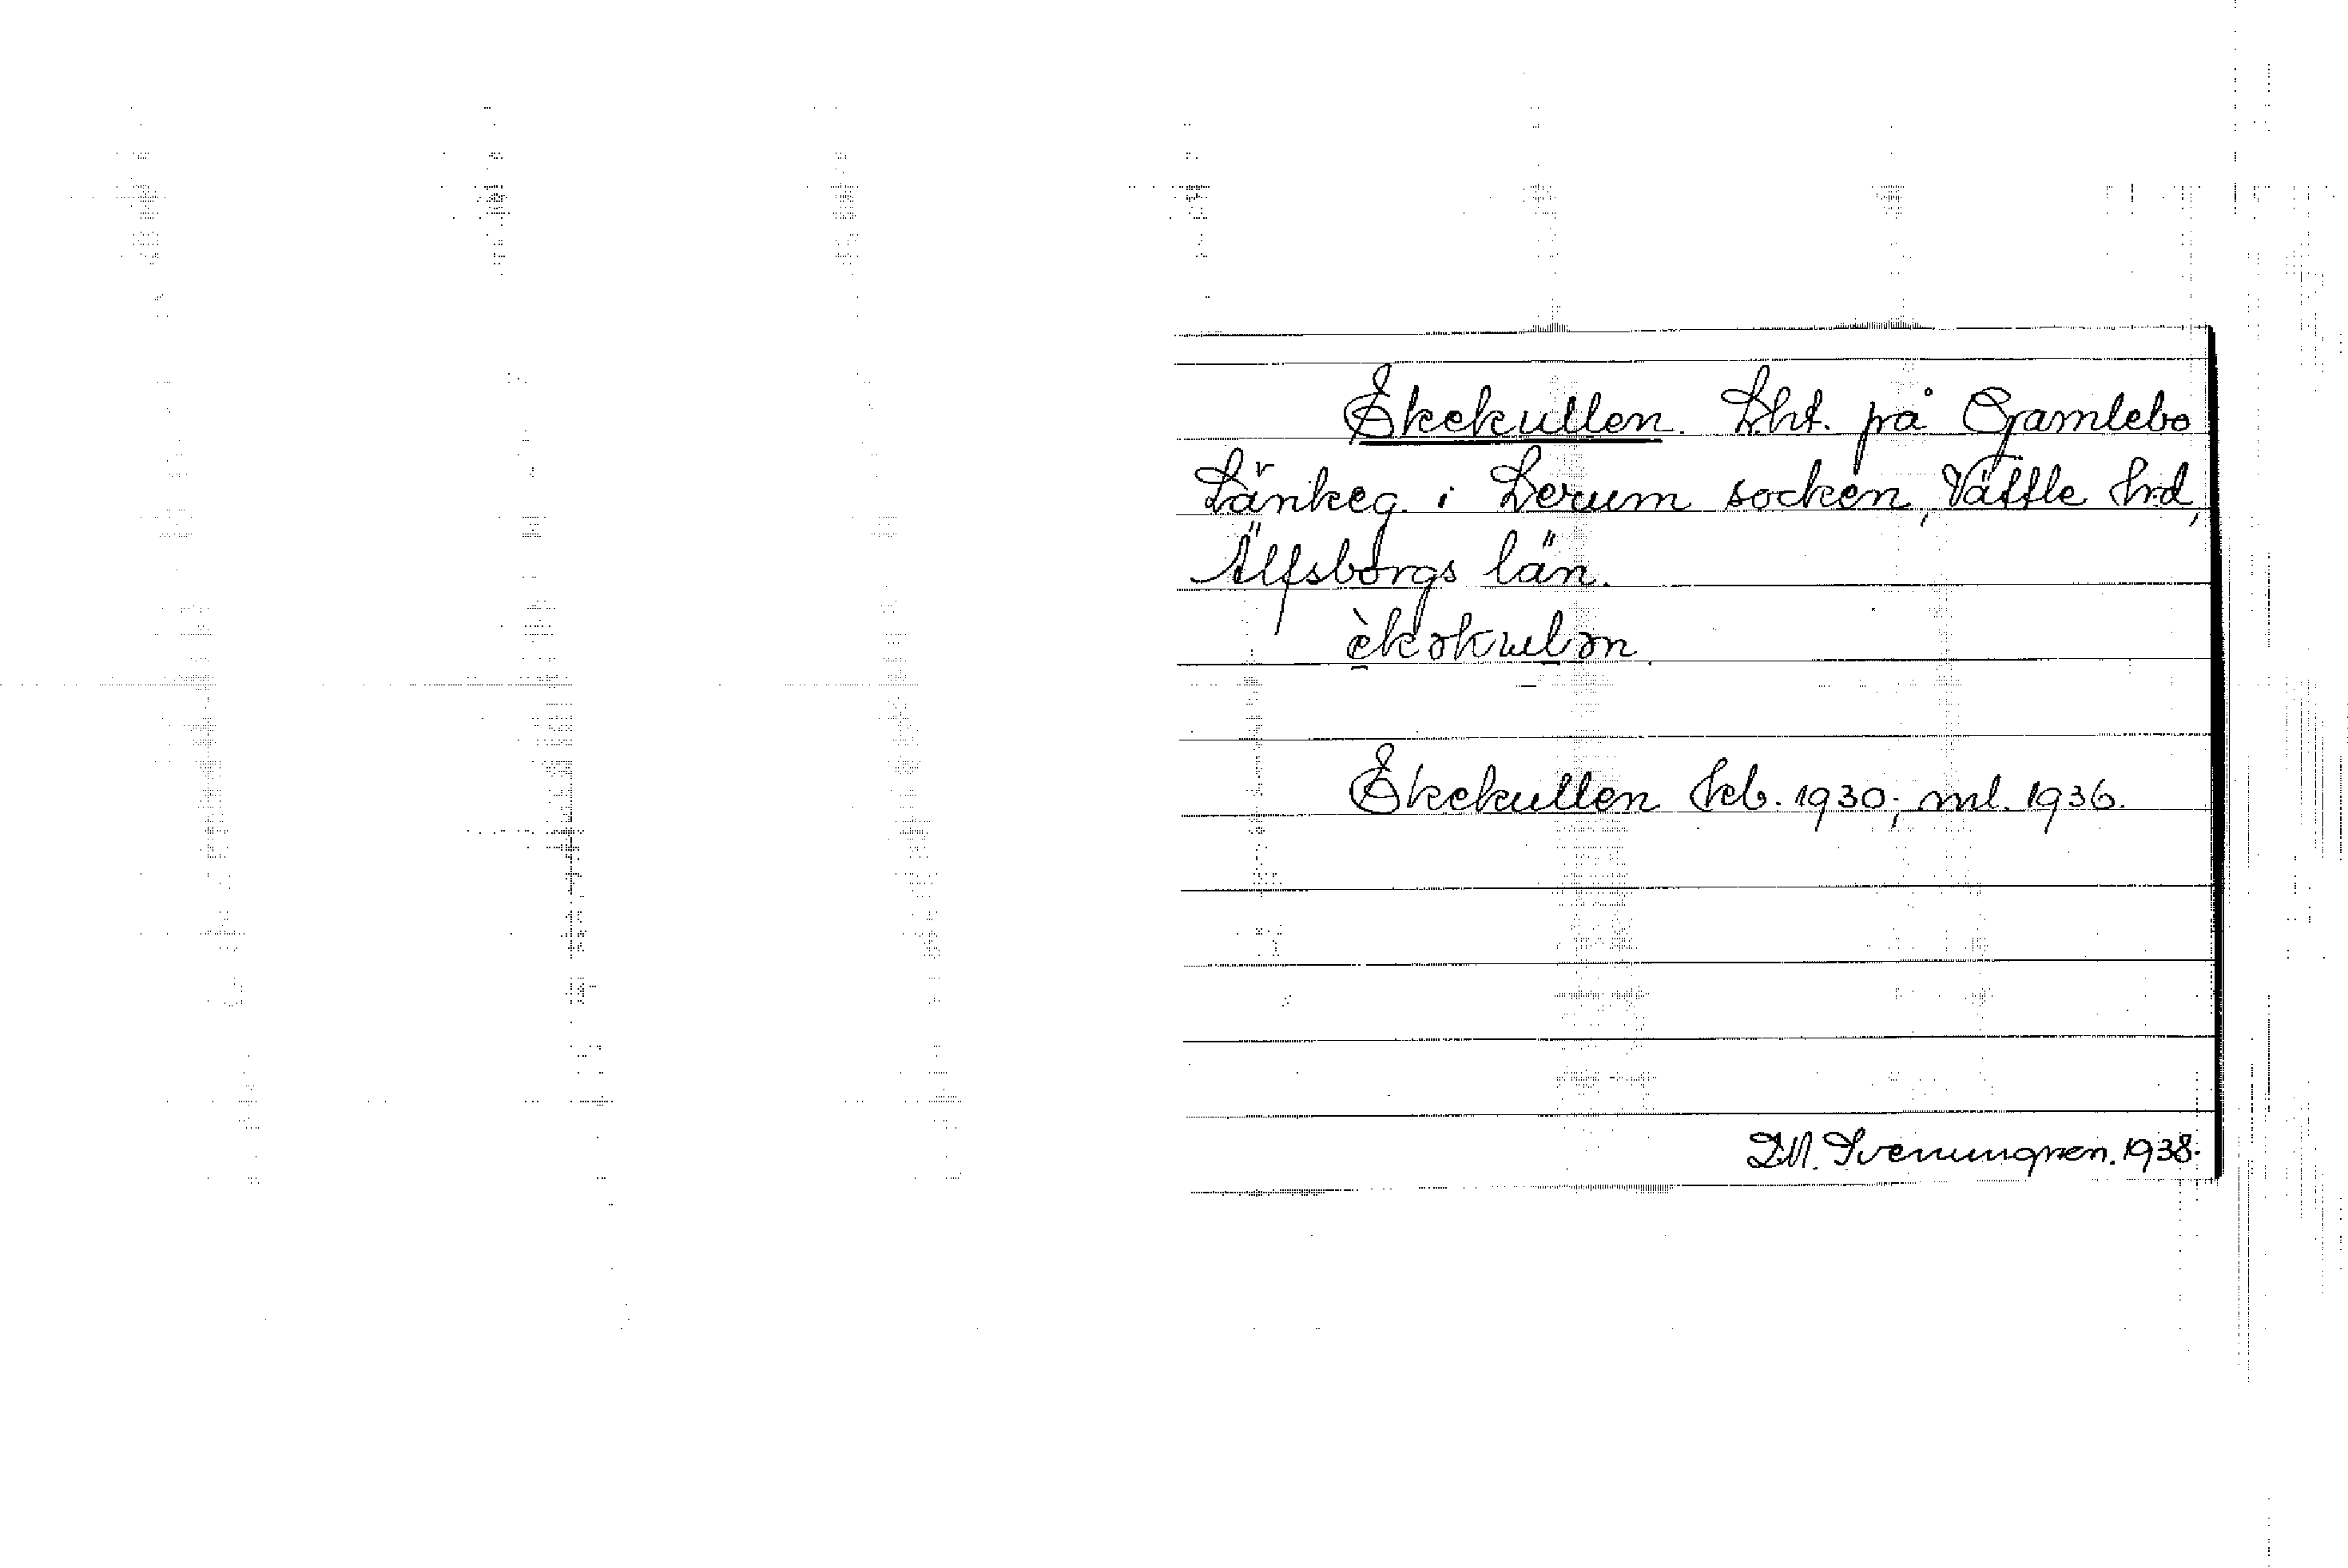 Ekekullen. Lht. på Gamlebo
Länkeg. i Lerum socken, Vättle hrd,
Älfsborgs län.
èkəkulən
Ekekullen kb. 1930; ml. 1936.
D.M. Svenungren. 1938.